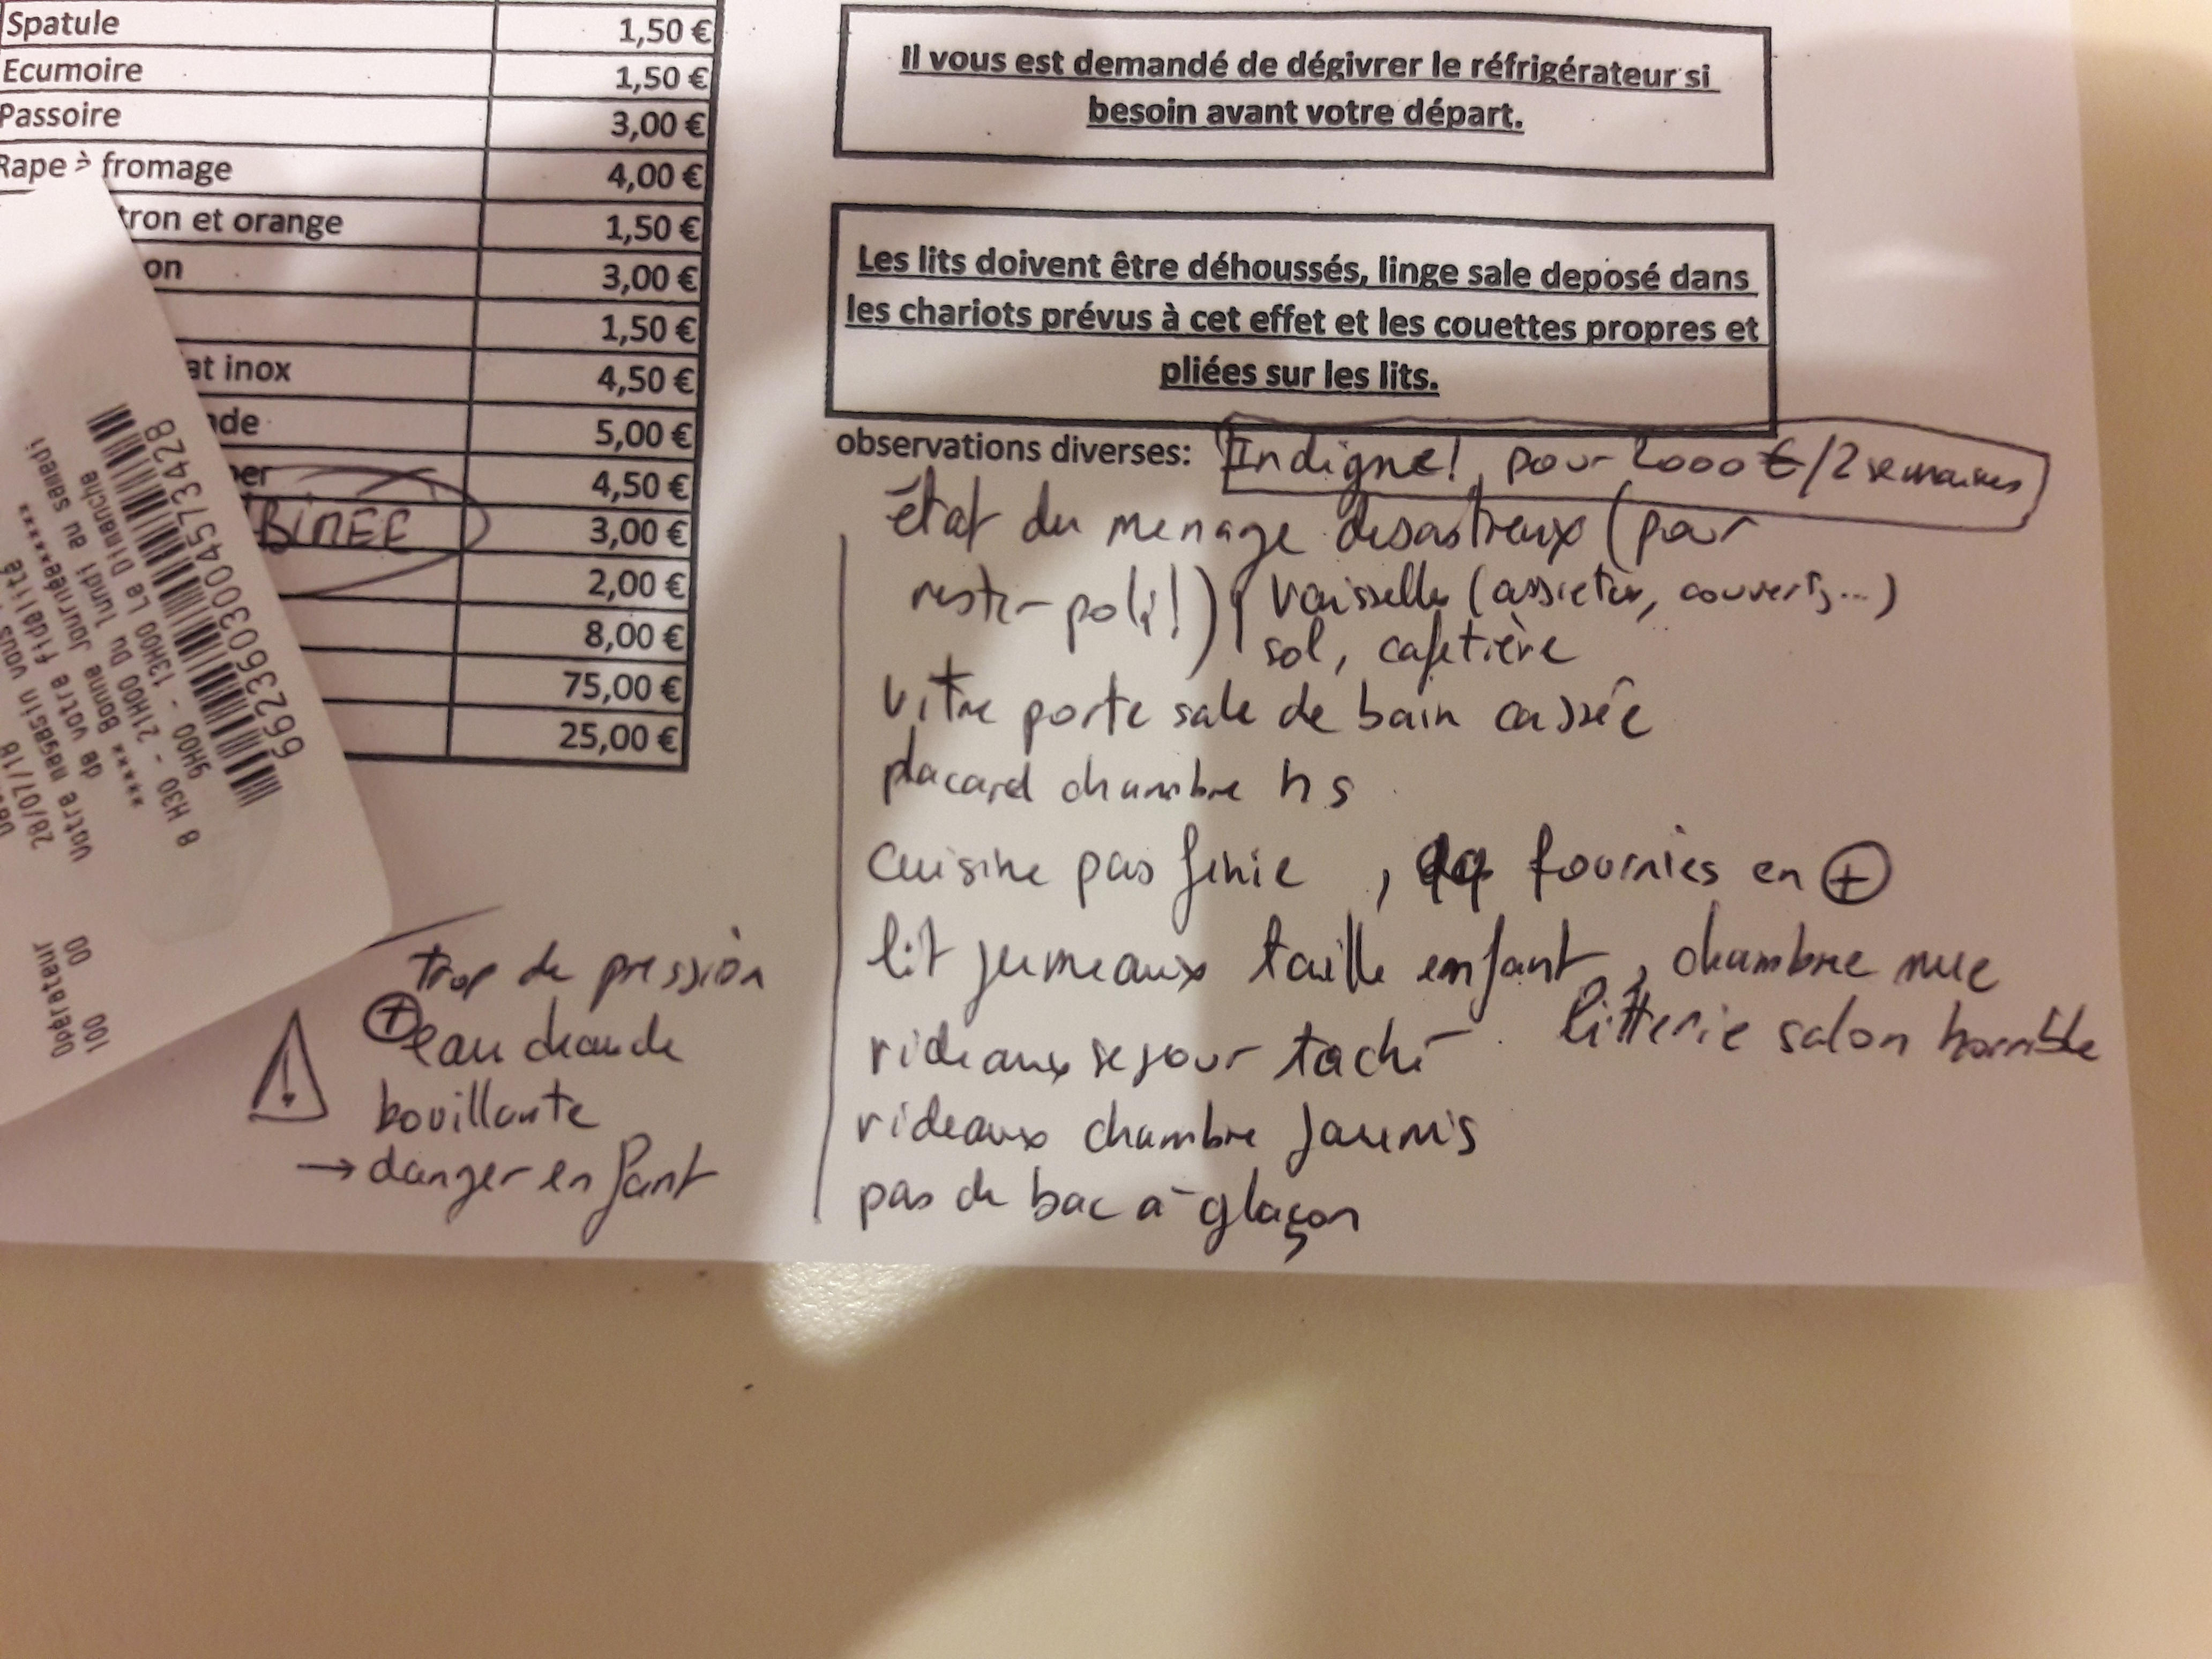 Spatule 1,50 €
Ecumoire 1,50 €
Passoire 3,00 €
Rape à fromage 4,00 €
tron et orange 1,50 €
on 3,00 €
1,50 €
at inox 4,50 €
de 5,00 €
per 4,50 €
3,00 €
2,00 €
8,00 €
75,00 €
25,00 €
Il vous est demandé de dégivrer le réfrigérateur si
besoin avant votre départ.
Les lits doivent être déhoussés, linge sale deposé dans
les chariots prévus à cet effet et les couettes propres et
pliées sur les lits.
observations diverses: Indigne! pour 2000 €/2 semaines
état du menage desastreux (pour
rester poli!) vaisselle (assiettes, couverts, ...)
sol, cafetière
vitre porte salle de bain cassée
placard chambre hs
cuisine pas finie , fournies en +
lit jumeaux taille enfant, chambre nue
litterie salon horrible
rideaux sejour taché
rideaux chambre jaunis
pas de bac à glaçon
trop de pression
+ eau chaude
bouillante
→ danger enfant
!
6623603004573428
8 H30 - 21H00 Du lundi au samedi
9H00 - 13H00 Le Dimanche
***** Bonne journée*****
de votre fidélité
Votre magasin vous
28/07/18
Opérateur
100 00